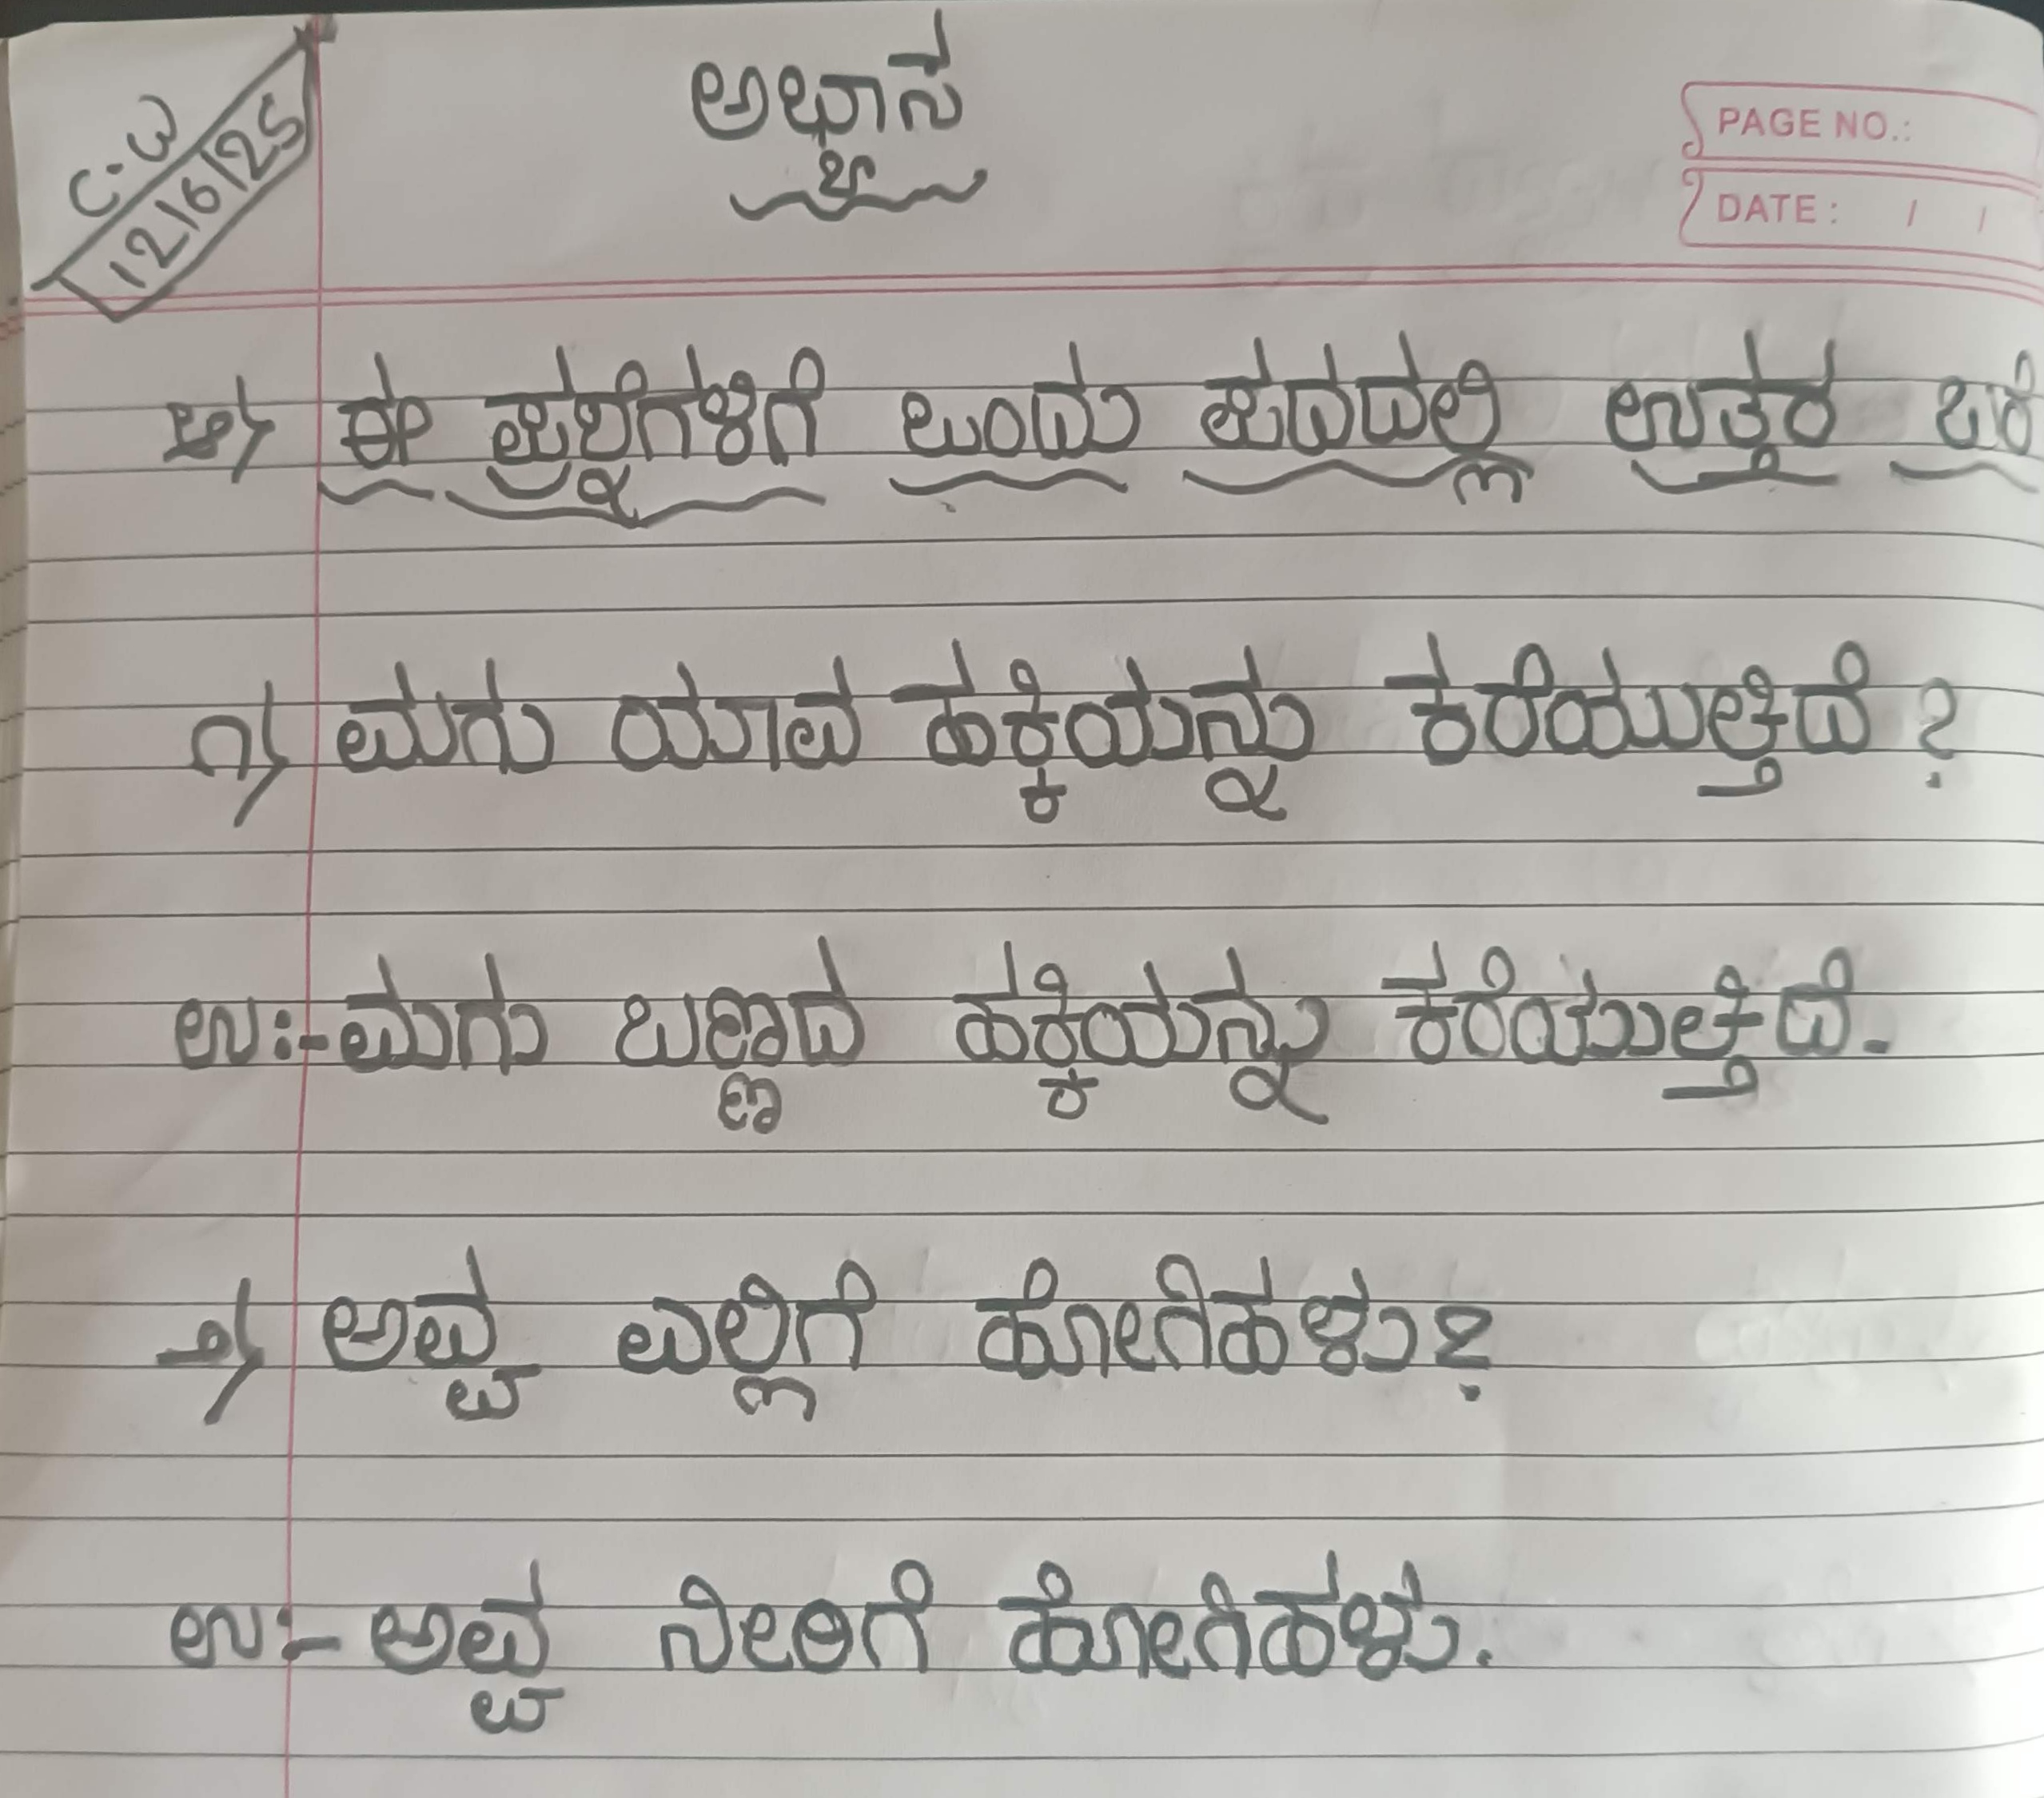 C.W
12/6/25
ಅಭ್ಯಾಸ
PAGE NO.:
DATE: / /
ಅ) ಈ ಪ್ರಶ್ನೆಗಳಿಗೆ ಒಂದು ಪದದಲ್ಲಿ ಉತ್ತರ ಬರೆ
೧) ಮಗು ಯಾವ ಹಕ್ಕಿಯನ್ನು ಕರೆಯುತ್ತಿದೆ ?
ಉ:- ಮಗು ಬಣ್ಣದ ಹಕ್ಕಿಯನ್ನು ಕರೆಯುತ್ತಿದೆ.
೨) ಅವ್ವ ಎಲ್ಲಿಗೆ ಹೋಗಿಹಳು?
ಉ:- ಅವ್ವ ನೀರಿಗೆ ಹೋಗಿಹಳು.